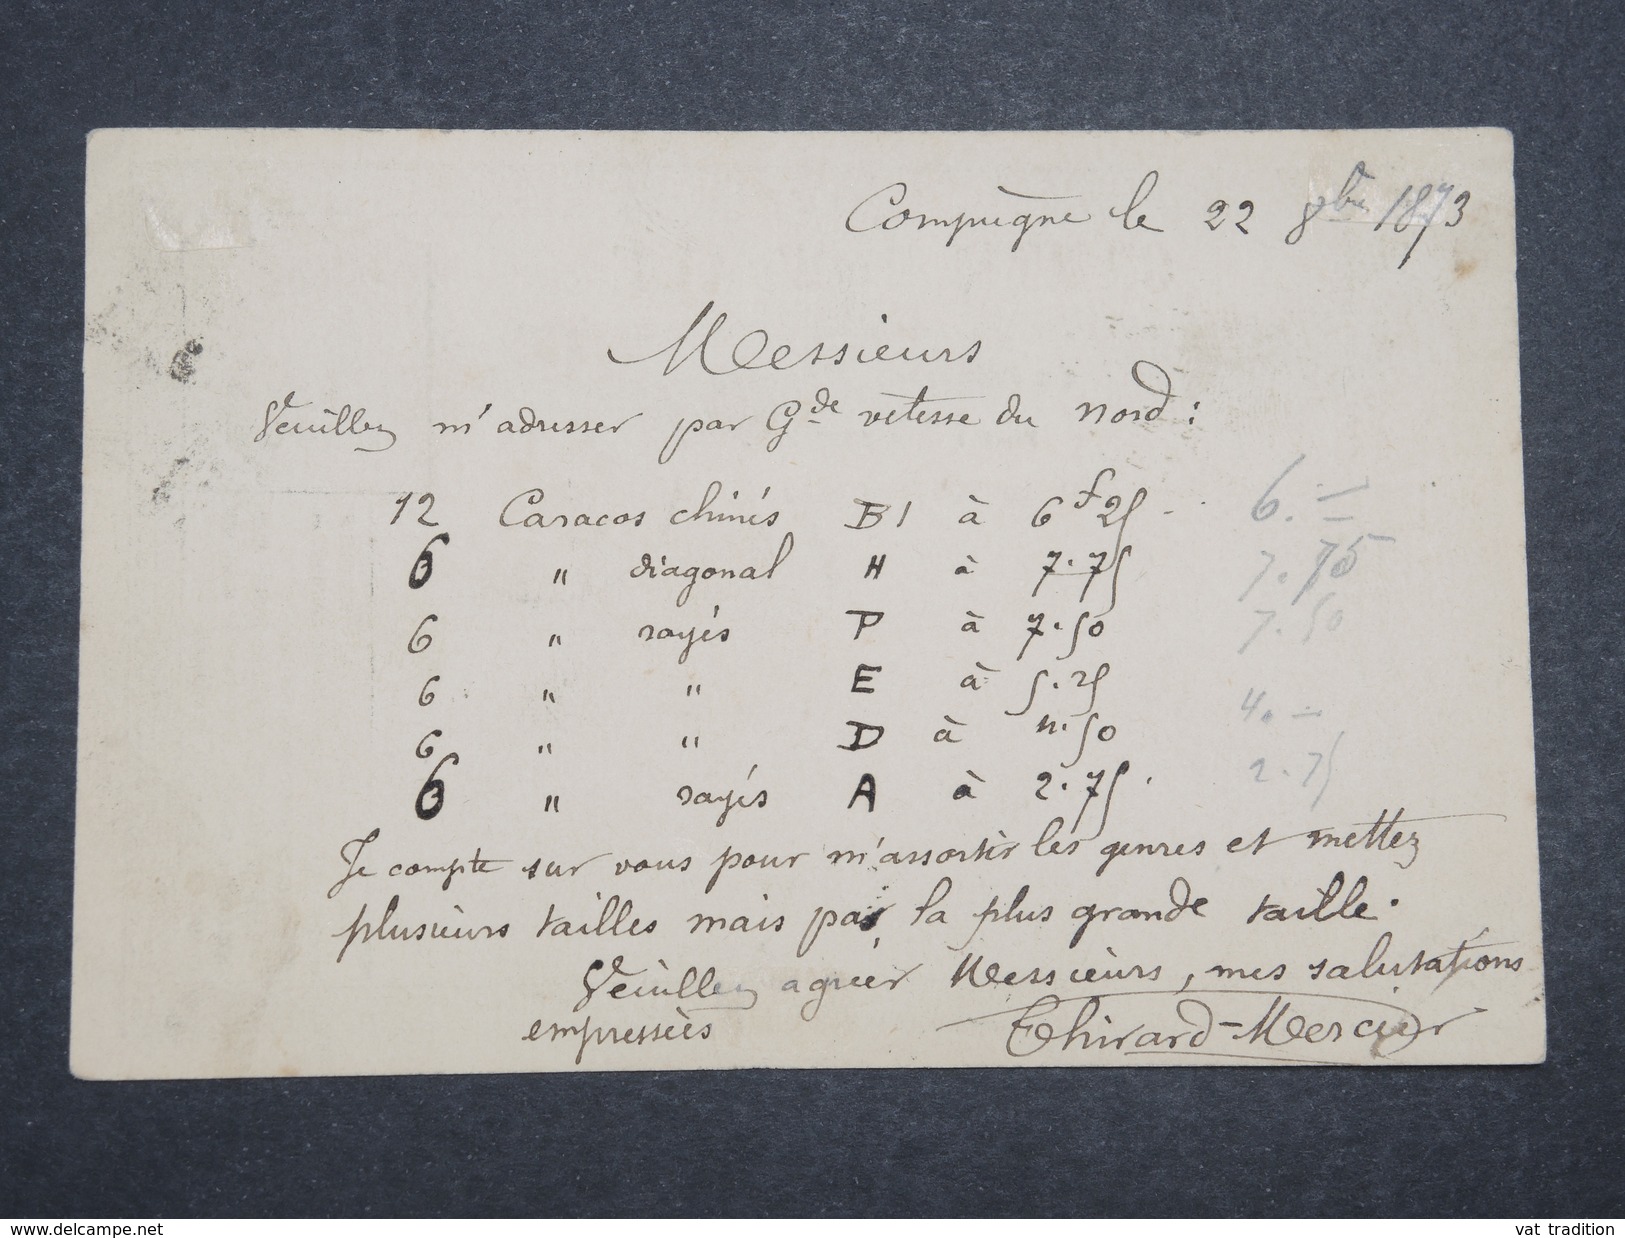 Compiègne le 22 8bre 1873
Messieurs
Veuillez m'adresser par Gde vitesse du Nord :
12 Caracos chinés B1 à 6f25 6. —
6 " diagonal H à 7.75 7.75
6 " rayés P à 7.50 7.50
6 " " E à 5.25
6 " " D à 4.50 4. —
6 " rayés A à 2.75. 2.75
Je compte sur vous pour m'assortir les genres et mettez
plusieurs tailles mais pas la plus grande taille.
Veuillez agréer Messieurs, mes salutations
empressées Thirard-Mercier
www.delcampe.net
vat tradition